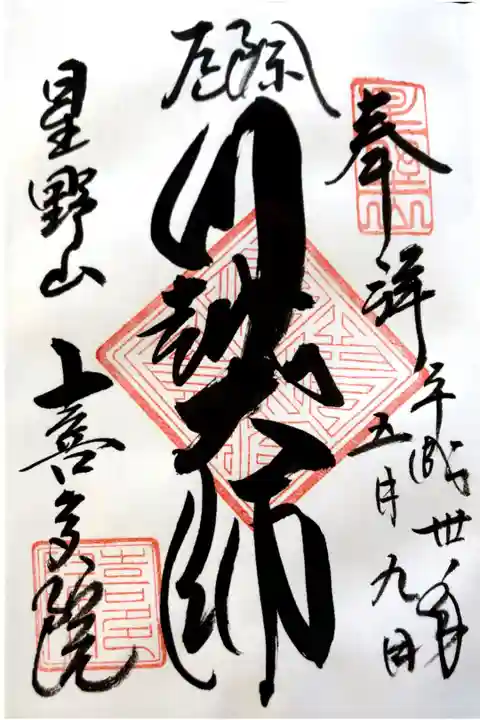 奉拝
平成卅年
五月九日
厄除
川越大師
星野山
喜多院